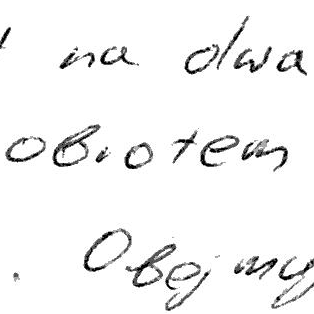 na dwa
obrotem
. Obejmy